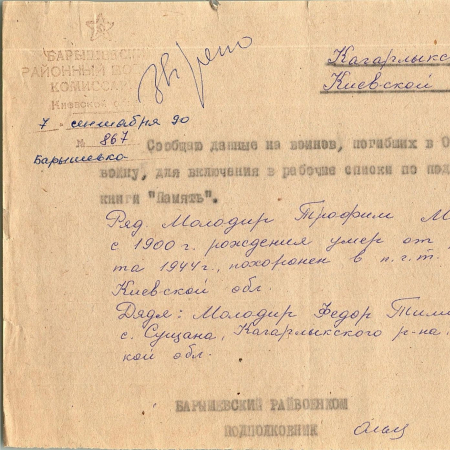 БАРЫШЕВСКИЙ
РАЙОННЫЙ ВО
КОМИССАР
Киевской
Звірено
Кагарлыкс
Киевской
7 сентября 90
№ 867
Барышевка
Сообщаю данные на воинов, погибших в О
войну, для включения в рабочие списки по под
книги "Память".
Ряд. Молодир Трофим М
с 1900 г. рождения умер от
та 1944г., похоронен в п.г.т.
Киевской обл.
Дядя: Молодир Федор Тим
с. Сущана, Кагарлыкского р-на
кой обл.
БАРЫШЕВСКИЙ РАЙВОЕНКОМ
ПОДПОЛКОВНИК